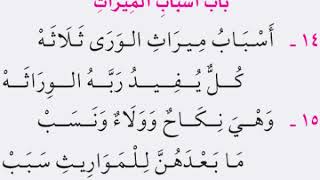 بَابُ أَسْبَابِ الْمِيرَاثِ
١٤ - أَسْبَابُ مِيرَاثِ الوَرَى ثَلَاثَهْ
كُلٌّ يُفِيدُ رَبَّهُ الوِرَاثَهْ
١٥ - وَهْيَ نِكَاحٌ وَوَلَاءٌ وَنَسَبْ
مَا بَعْدَهُنَّ لِلْمَوَارِيثِ سَبَبْ